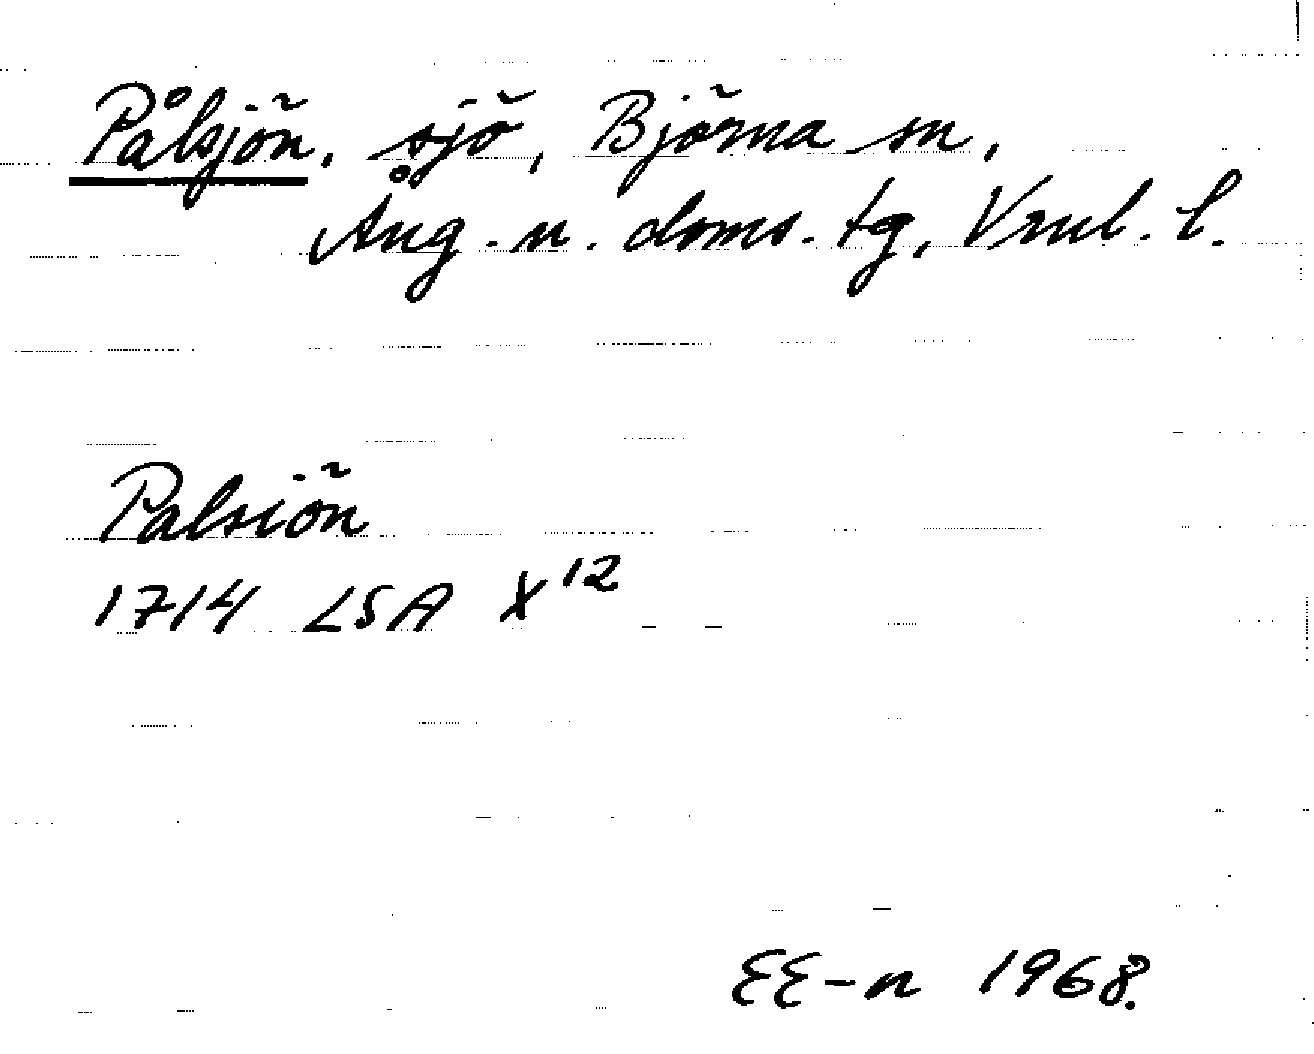 Pålsjön, sjö, Björna sn,
Ång. n. doms. tg, Vrnl. l.
Palsiön
1714 LSA X 12
EE-n 1968.